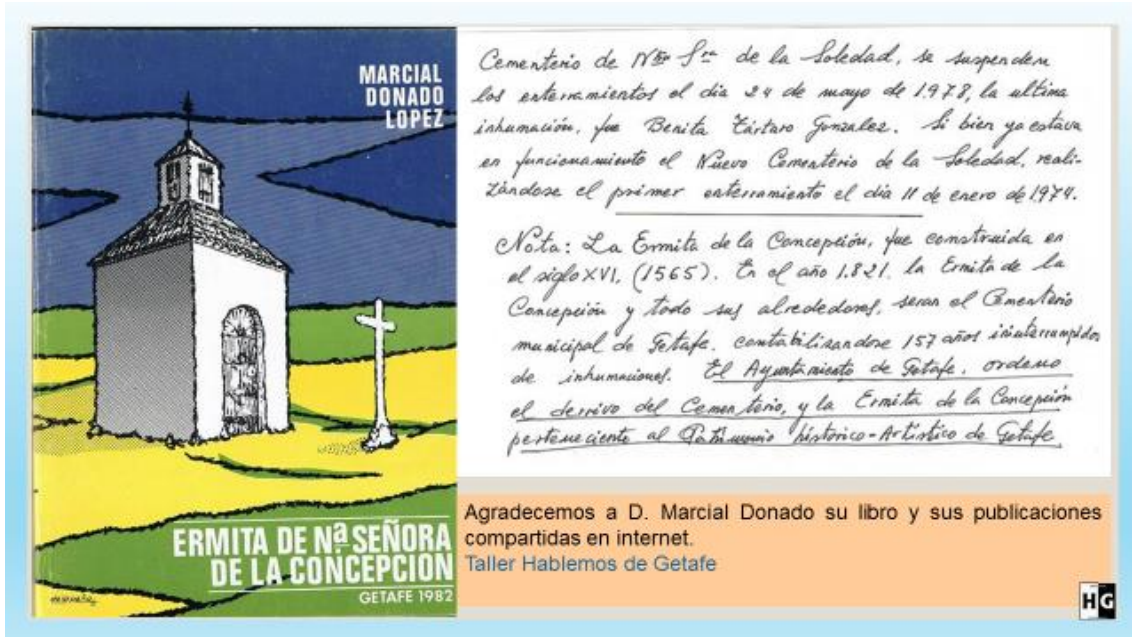 MARCIAL
DONADO
LOPEZ
ERMITA DE Nª SEÑORA
DE LA CONCEPCION
GETAFE 1982
Cementerio de Nª Sra de la Soledad, se suspenden
los enterramientos el dia 24 de mayo de 1.978, la ultima
inhumación, fue Benita Zártaro Gonzalez. Si bien ya estava
en funcionamiento el Nuevo Cementerio de la Soledad, reali-
zándose el primer enterramiento el dia 11 de enero de 1974.
Nota: La Ermita de la Concepción, fue construida en
el siglo XVI, (1565). En el año 1.821. la Ermita de la
Concepción y todo sus alrededores, seran el Cementerio
municipal de Getafe. contabilizandose 157 años ininterrumpidos
de inhumaciones. El Ayuntamiento de Getafe, ordeno
el derrivo del Cementerio, y la Ermita de la Concepción
perteneciente al Patrimonio histórico-Artístico de Getafe.
Agradecemos a D. Marcial Donado su libro y sus publicaciones
compartidas en internet.
Taller Hablemos de Getafe
HG